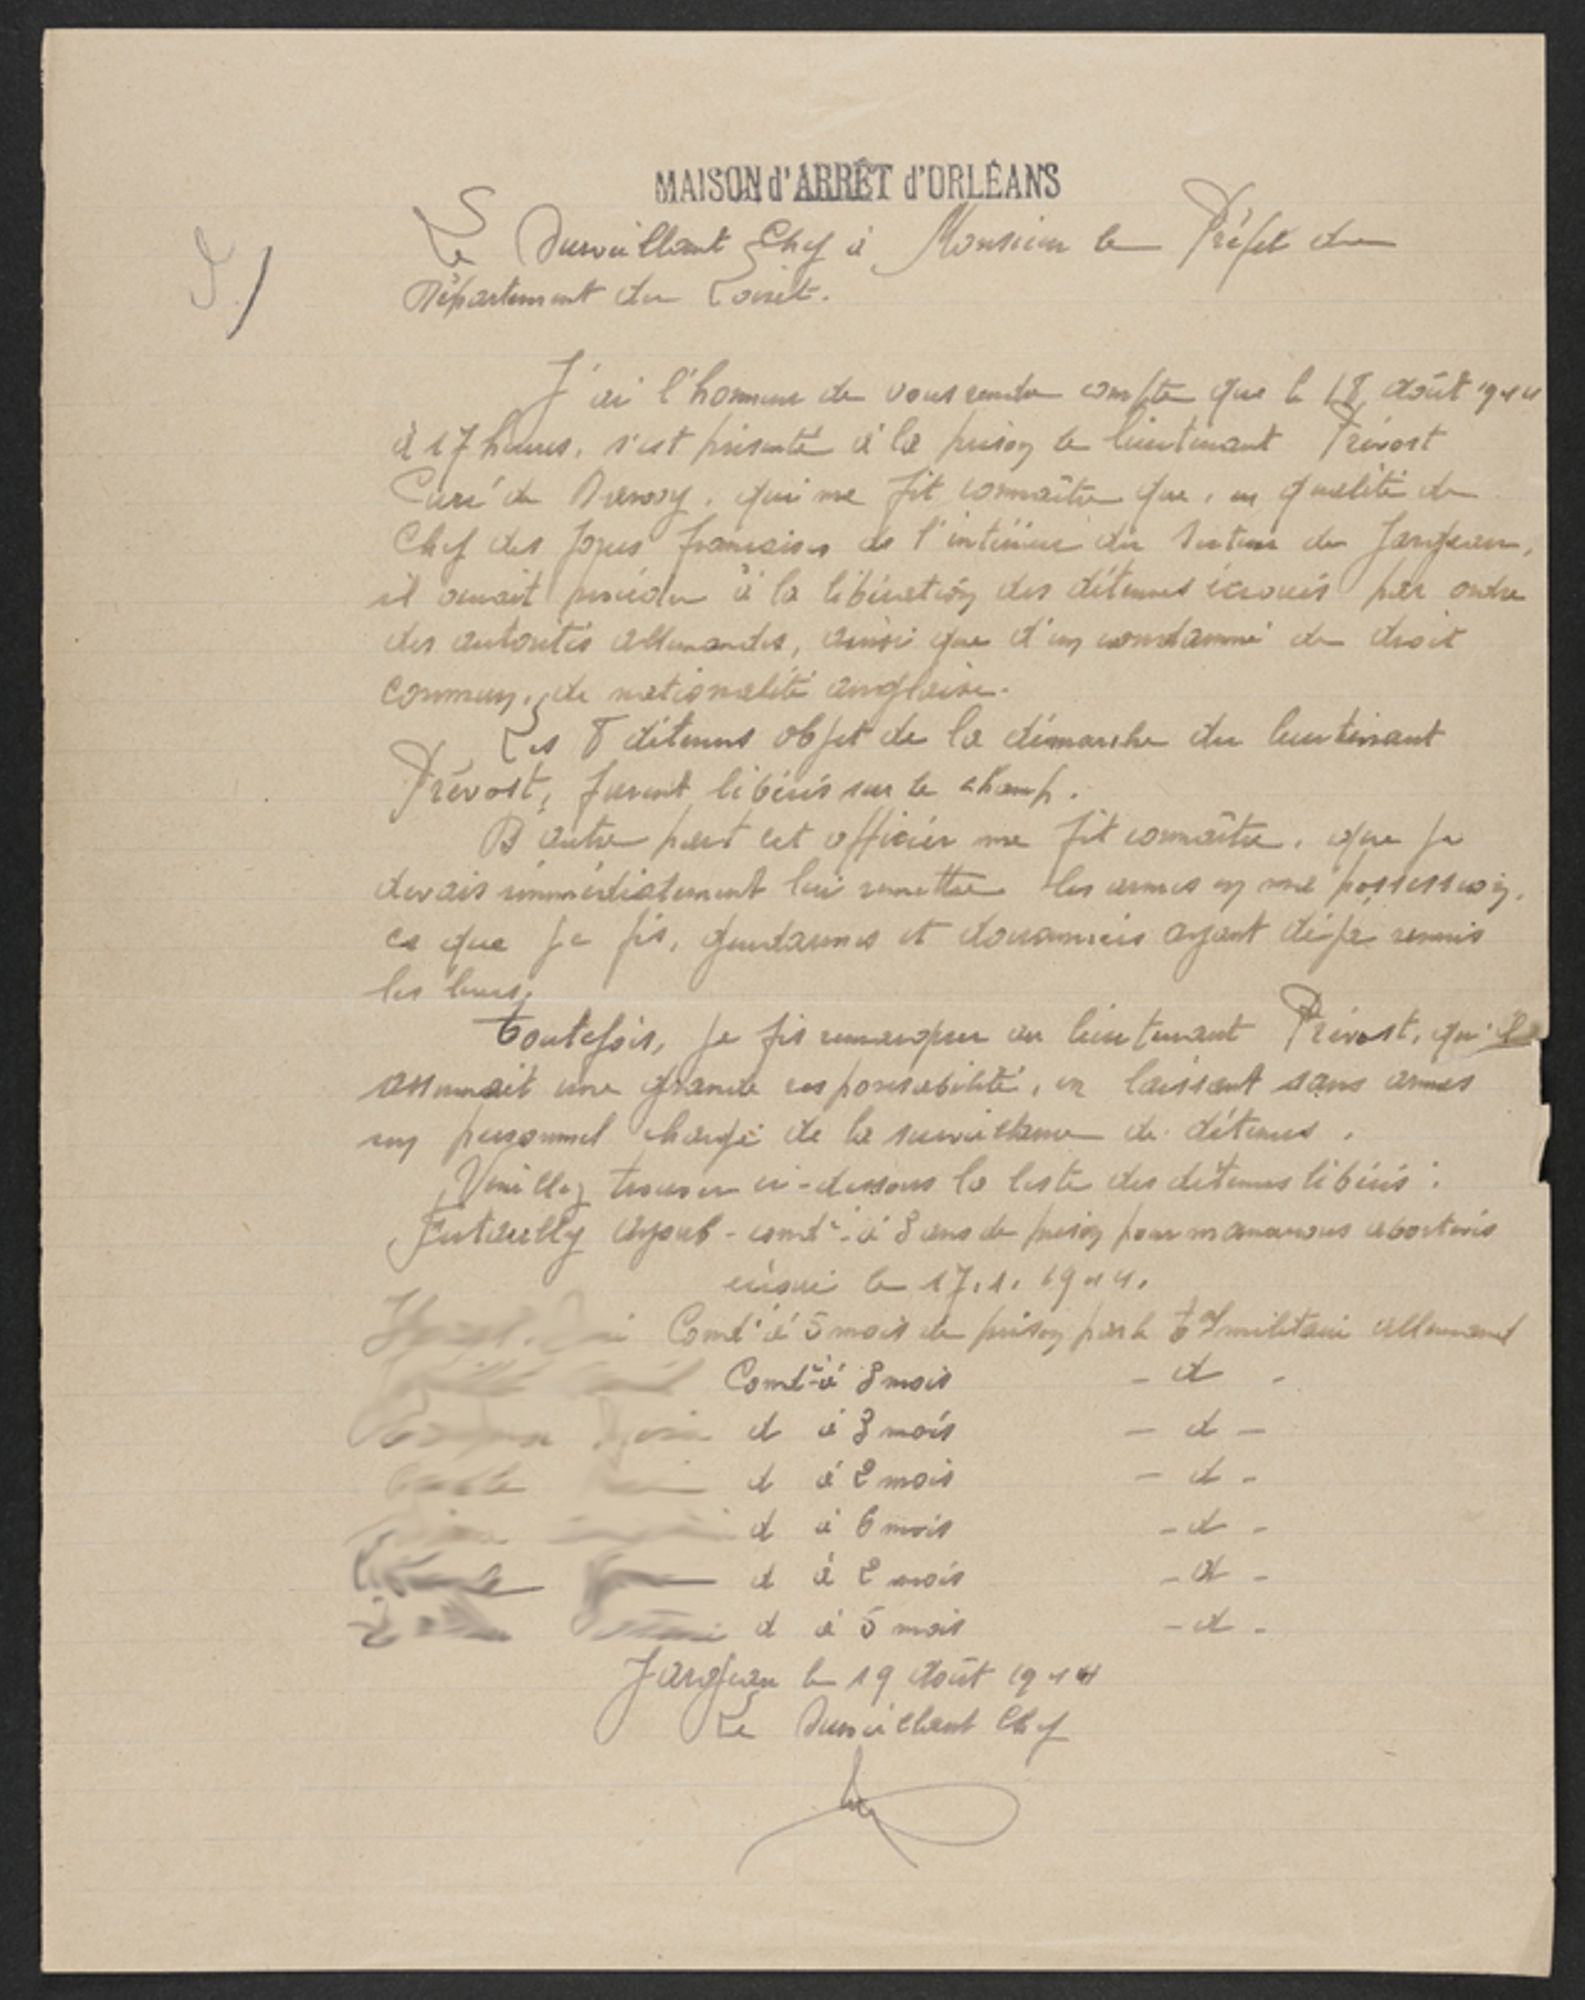 MAISON d'ARRÊT d'ORLÉANS
Le Surveillant Chef à Monsieur le Préfet du
Département du Loiret.
J'ai l'honneur de vous rendre compte que le 18 août 1944
à 17 heures, s'est présenté à la prison le lieutenant Prévost
Curé de, qui me fit connaître que, en qualité de
Chef des forces françaises de l'intérieur du secteur de Jargeau,
il venait procéder à la libération des détenus écroués par ordre
des autorités allemandes, ainsi que d'un condamné de droit
commun, de nationalité anglaise.
Les 8 détenus objet de la démarche du lieutenant
Prévost, furent libérés sur le champ.
D'autre part cet officier me fit connaître, que je
devais immédiatement lui remettre les armes en ma possession,
ce que je fis, gendarmes et douaniers ayant déjà remis
les leurs.
Toutefois, je fis remarquer au lieutenant Prévost, qu'il
assumait une grande responsabilité, en laissant sans armes
un personnel chargé de la surveillance de détenus.
Veuillez trouver ci-dessous la liste des détenus libérés :
ayoub - condé à 3 ans de prison pour manœuvres abortives
écroué le 17.1.1944.
Condé à 5 mois de prison par le tal militaire allemand
Condé à 3 mois - d -
d à 3 mois - d -
d à 2 mois - d -
d à 6 mois - d -
d à 2 mois - d -
d à 5 mois - d -
Jargeau le 19 août 1944
Le Surveillant Chef